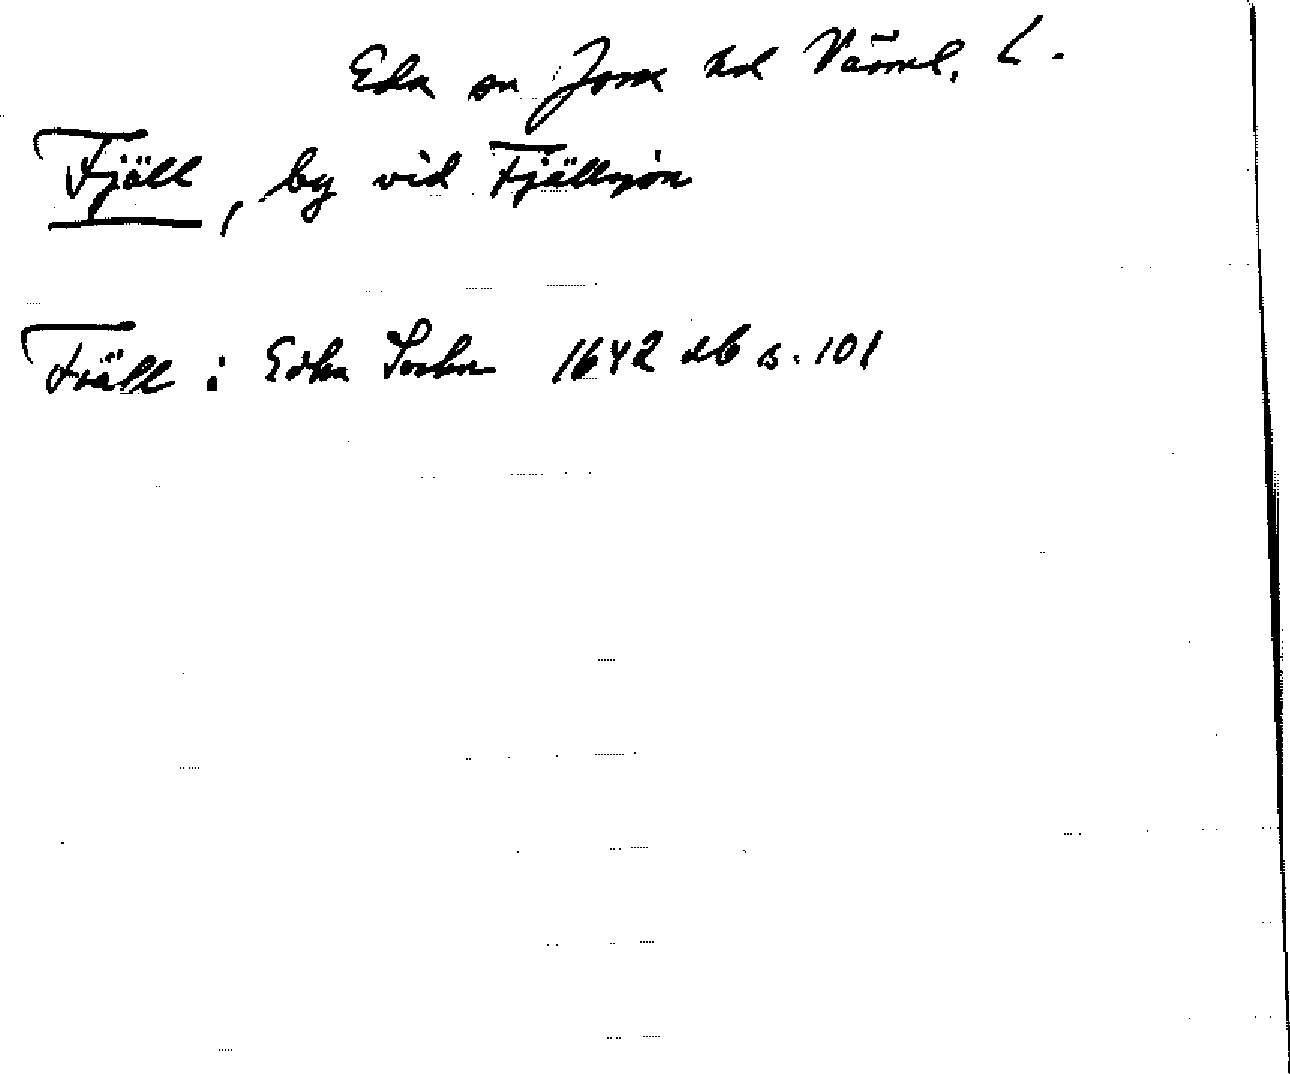 Eda sn Jösse hd Värml. L.
Fjäll, by vid Fjällsjön
Fiäll i Edha Sockn 1642 db s. 101